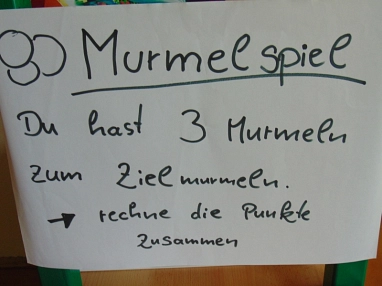 Murmelspiel
Du hast 3 Murmeln
zum Zielmurmeln.
→ rechne die Punkte
zusammen